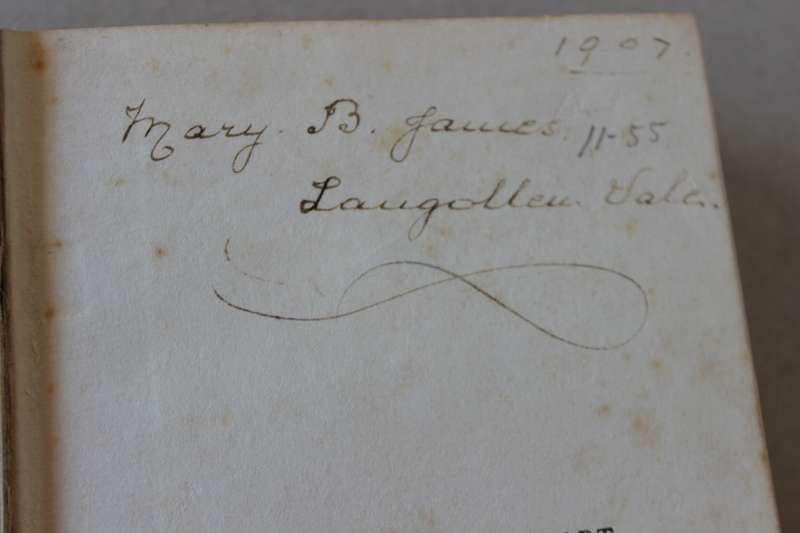 1907
Mary. B. James. 11-55
Langollen Vale.